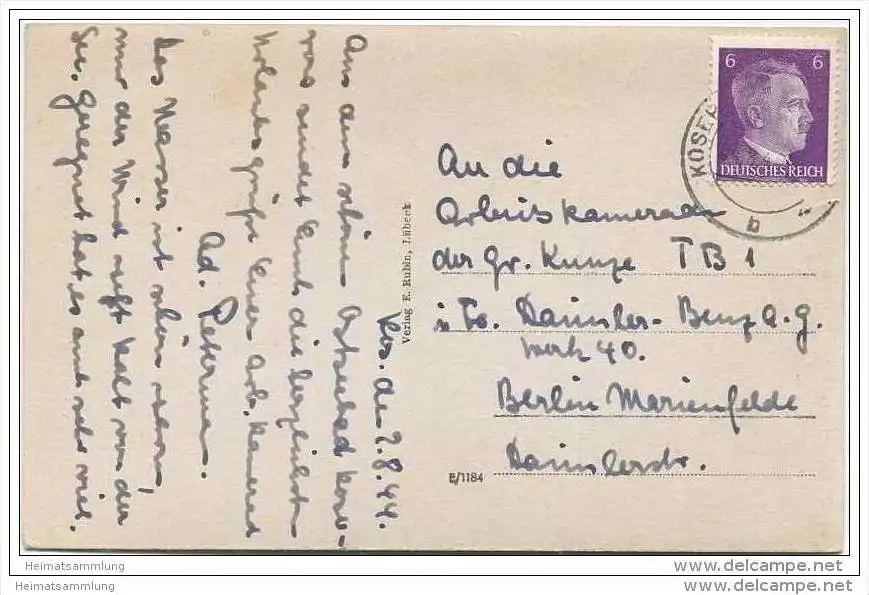 Kos. den 2.8.44.
Aus dem schönen Ostseebad Kose-
row sendet Euch die herzlichsten
Urlaubsgrüße Euer Arb. Kamerad
Ad. Petermann.
Das Wasser ist schön,
nur der Wind weht kalt von der
See. Geregnet hat es auch sehr viel.
Verlag E. Rubin, Lübeck
6 6
DEUTSCHES REICH
KOSER
b
An die
Arbeitskameraden
der Gr. Kunze TB 1
i. Fa. Daimler-Benz A.G.
Werk 40.
Berlin Marienfelde
Daimlerstr.
E/1184
Heimatsammlung
www.delcampe.net
Heimatsammlung
www.delcampe.net